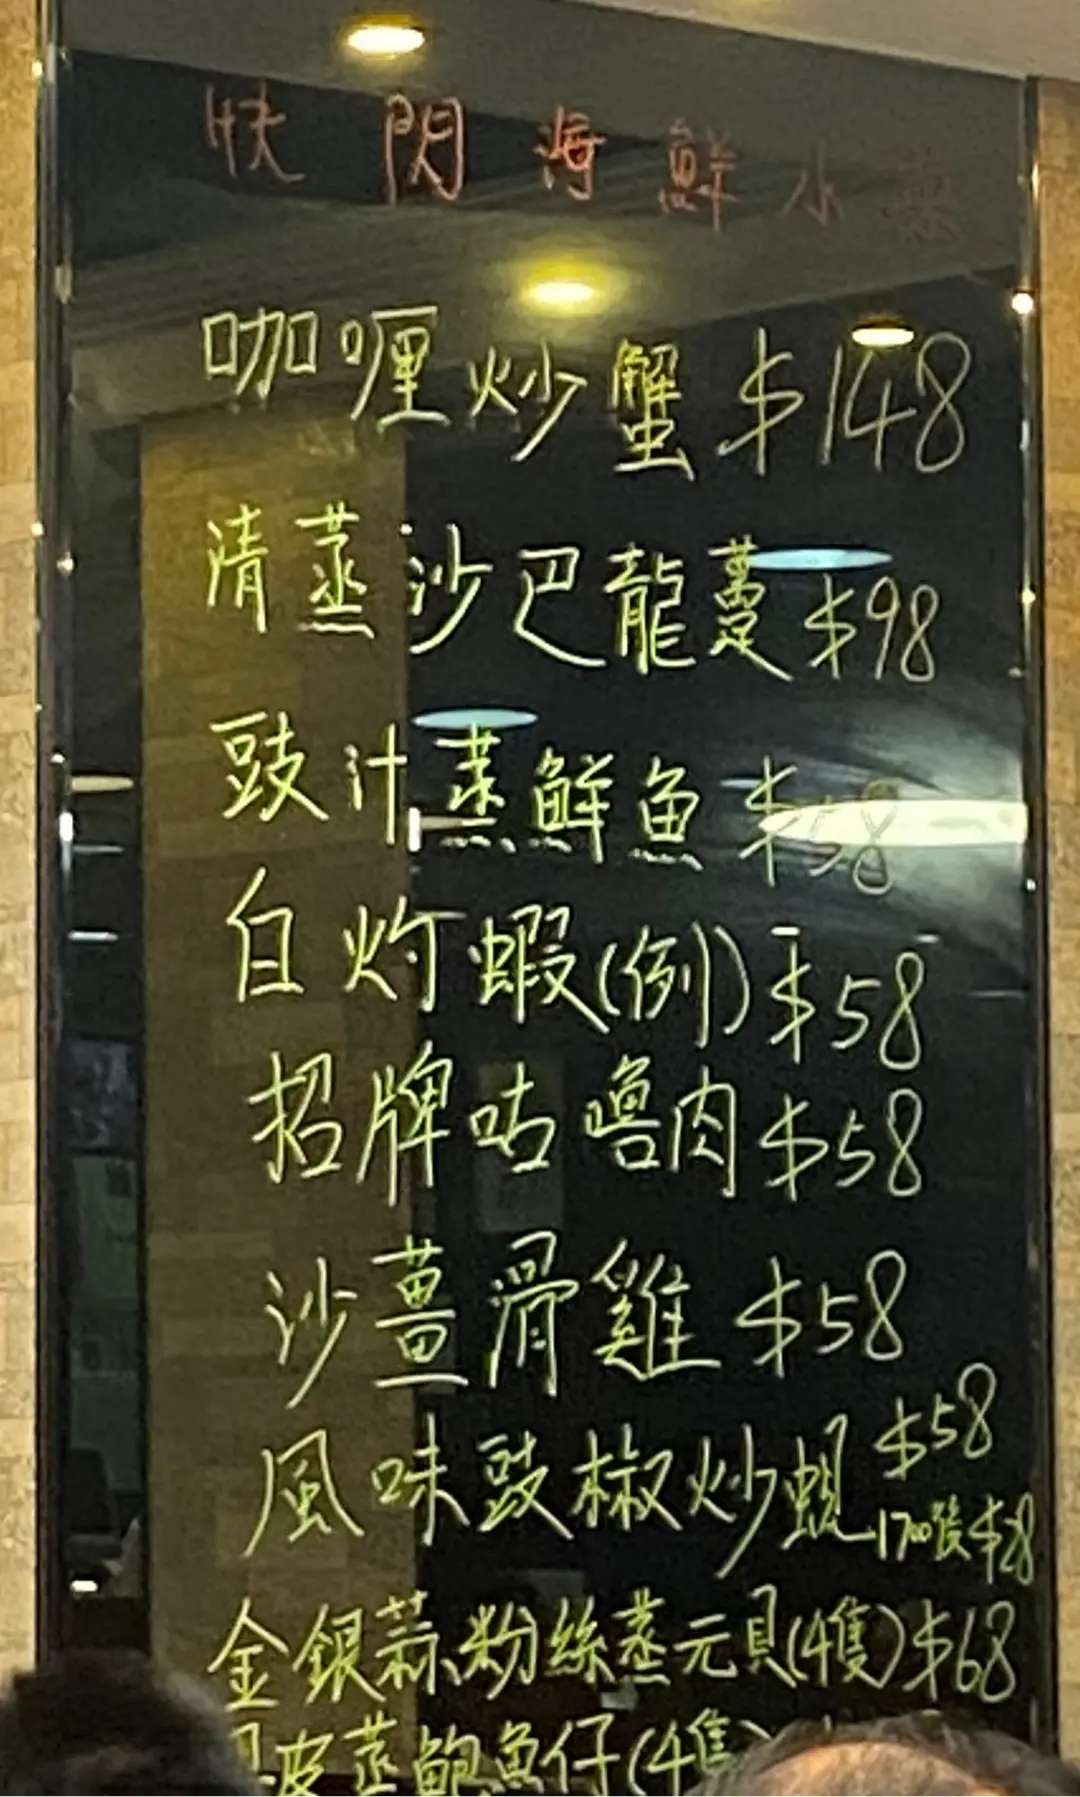 快閃海鮮小菜
咖喱炒蟹 $148
清蒸沙巴龍躉 $98
豉汁蒸鮮魚 $58
白灼蝦(例) $58
招牌咕嚕肉 $58
沙薑滑雞 $58
風味豉椒炒蜆 $58
1700後 $28
金銀蒜粉絲蒸元貝(4隻) $68
皮蒸鮑魚仔(4隻)